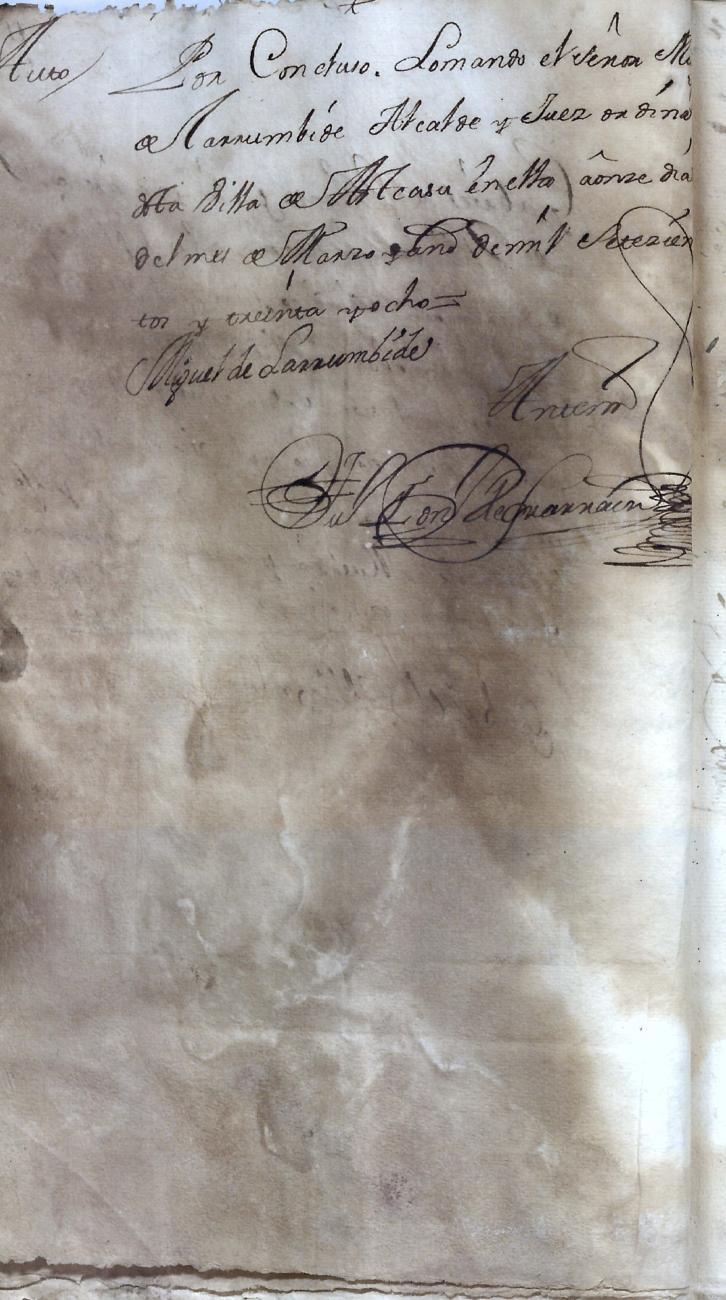 Auto Por Concluso. Lo mando el señor Mi
de Larrumbide Alcalde y Juez ordina
desta Villa de en ella a onze dia
del mes de Marzo y año de mil setezien
tos y treinta y ocho
Miguel de Larrumbide
Antemi